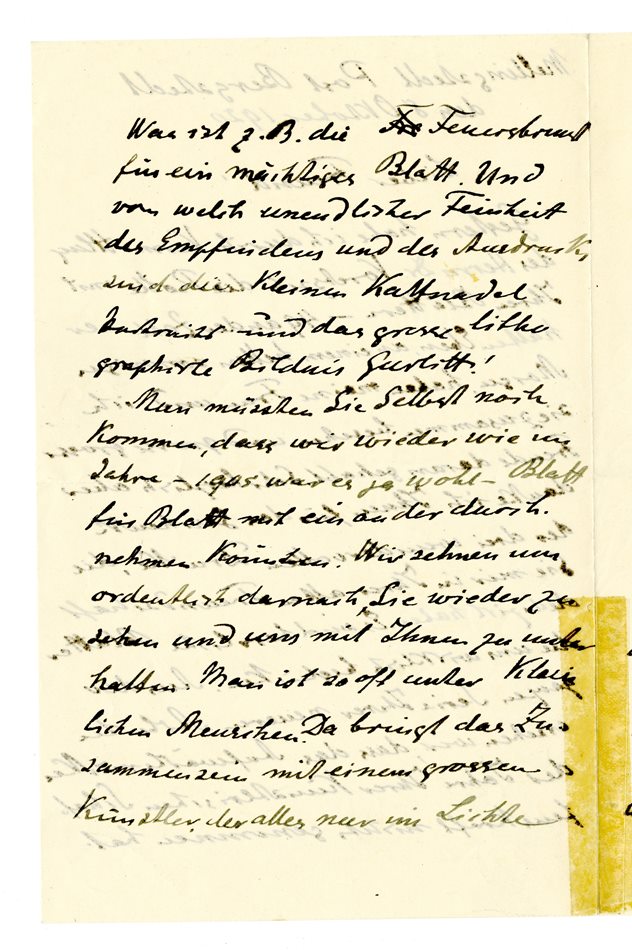 Was ist z. B. die Feuersbrunst
für ein mächtiges Blatt. Und
von welch unendlicher Feinheit
des Empfindens und des Ausdrucks
sind die kleinen Kaltnadel
und das grosse litho
graphirte Bildnis Gurlitt!
Nun müssten Sie Selbst noch
kommen, dass wir wieder wie im
Jahre – 1905 war es ja wohl – Blatt
für Blatt mit einander durch.
nehmen könnten. Wir sehnen uns
ordentlich darnach, Sie wieder zu
sehen und uns mit Ihnen zu unter
halten. Man ist so oft unter klein
lichen Menschen. Da bringt das Zu-
sammensein mit einem grossen
Künstler, der alles nur im Lichte